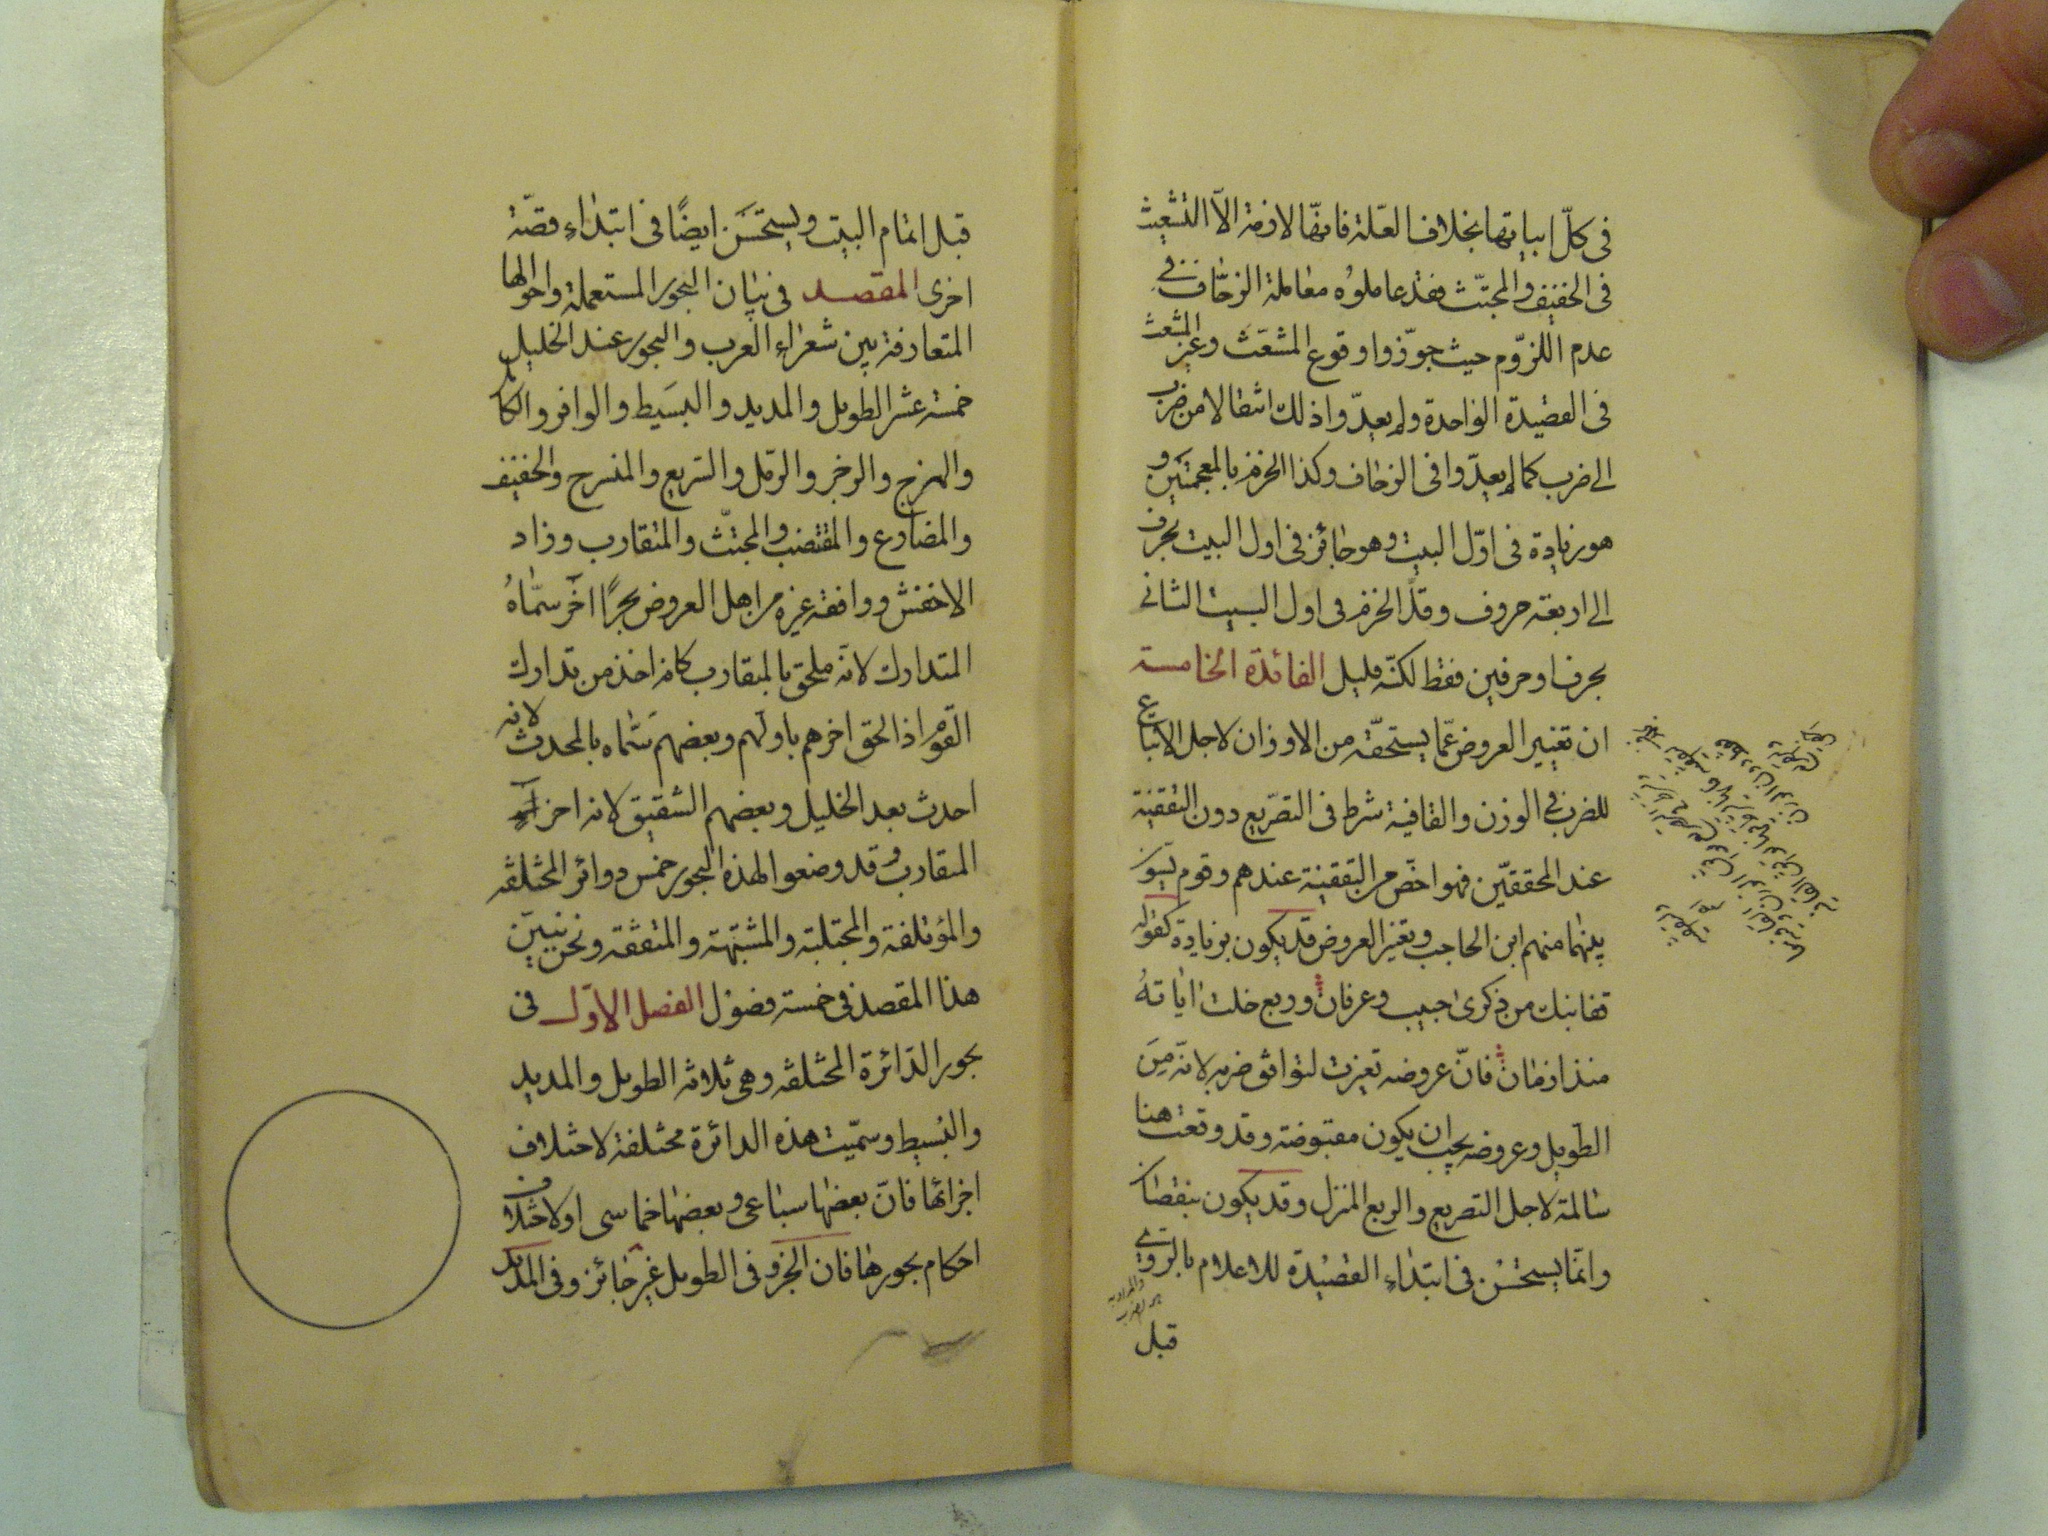 فى كلّ ابياتها بخلاف العلّة فانهّا لازمة الاّ التشعيث
فى الخفيف والمجتث فقد عاملوُه معاملة الزحّاف فى
عدم اللزوّم حيث جوّزوا وقوع المشعّث وغير المشعث
فى القصيدة الواحدة ولم يعدّوا ذلك انتقالا من ضرب
الى ضرب كما لم يعدّوا فى الزحاف وكذا الخزم بالمعجمتين و
هو زيادة فى اوّل البيت وهو جائز فى اول البيت بحرف
الى اربعة حروف وقلّ الخزم فى اول البيت الثانى
بحرف او حرفين فقط لكنّه قليل الفائدة الخامسة
ان تغيير العروض عمّا يستحقّه من الاوزان لاجل الاتباع
للضرب فى الوزن والقافية شرط فى التصرّيع دون التقفية
عند المحققيّن فهو اخصّ من التقفية عندهم وقوم يسّوون
بينهما منهم ابن الحاجب وتغير العروض قد يكون بزيادة كقوله
قفانبك من ذكرى حبيب وعرفان وربع خلت اياته
منذ ازمان فانّ عروضه تغيرت لتوافق ضربه لانّه من
الطّويل وعروضه يجب ان يكون مقبوضة وقد وقعت هنا
سالمة لاجل التصريع والربع المنزل وقد يكون بنقصان
وانمّا يستحسن فى ابتداء القصيدة للاعلام بالروىّ
قبل
قبل اتمام البيت ويستحسن ايضًا فى ابتداء قصّة
اخرى المقصد فى بيان البحور المستعملة واحوالها
المتعارفة بين شعراء العرب والبحور عند الخليل
خمسة عشر الطويل والمديد والبسيط والوافر والكامل
والهزج والرجز والرمل والسريع والمنسرح والخفيف
والمضارع والمقتضب والمجتثّ والمتقارب وزاد
الاخفش ووافقه غيره من اهل العروض بحرًا اخر سمّاهُ
المتدارك لانّه ملحق بالمتقارب كانه اخذ من تدارك
القوم اذا لحق اخرهم باولهم وبعضهم سمّاه بالمحدث لانه
احدث بعد الخليل وبعضهم الشقيق لانه اخو
المتقارب وقد وضعوا لهذه البحور خمس دوائر المختلفة
والمؤتلفة والمجتلبة والمشتبهة والمتفقة ونحن نبيّن
هذا المقصد فى خمسة فصول الفصل الاوّل فى
بحور الدّائرة المختلفة وهى ثلاثة الطويل والمديد
والبسيط وسمّيت هذه الدائرة مختلفة لاختلاف
اجزائها فانّ بعضها سباعى وبعضها خماسى او لاختلاف
احكام بحورها فان الجزو فى الطويل غير جائز وفى المديد